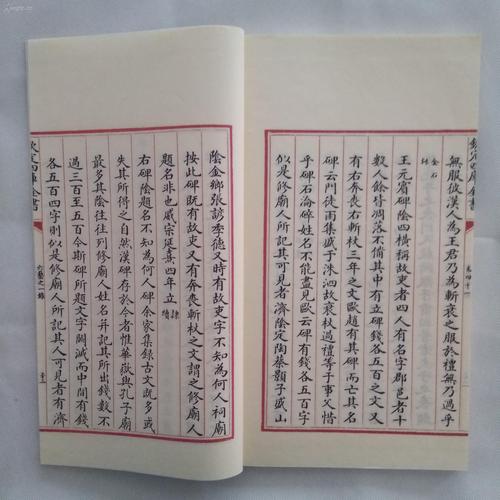 欽定四庫全書
卷四十一
無服彼漢人為王君乃為斬衰之服於禮無乃過乎
金石
錄
王元賓碑陰四橫稱故吏者四人有名字郡邑者十
數人餘皆凋落不備其中有立碑錢各五百之文又
有右奔喪右斬杖三年之文歐趙有其碑而亡其名
碑云門徒雨集盛于洙泗故衰杖過禮等于事父惜
乎碑石淪碎姓名不能盡見歐云碑有錢各五百字
似是修廟人所記其可見者濟陰定陶蔡顥子盛山
陰金鄉張諺季德又時有故吏字不知為何人祠廟
按此碑既有故吏又有奔喪斬杖之文謂之修廟人
題名非也威宗延熹四年立隸
續
右碑陰題名不知為何人碑余家集錄古文既多或
失其所得之自然漢碑存於今者惟華嶽與孔子廟
最多其陰往往列修廟人姓名并記其所出錢數不
過三百至五百今斯碑所題文字闕滅而中間有錢
各五百四字則似是修廟人所記其人可見者有濟
欽定四庫全書
六藝之一錄